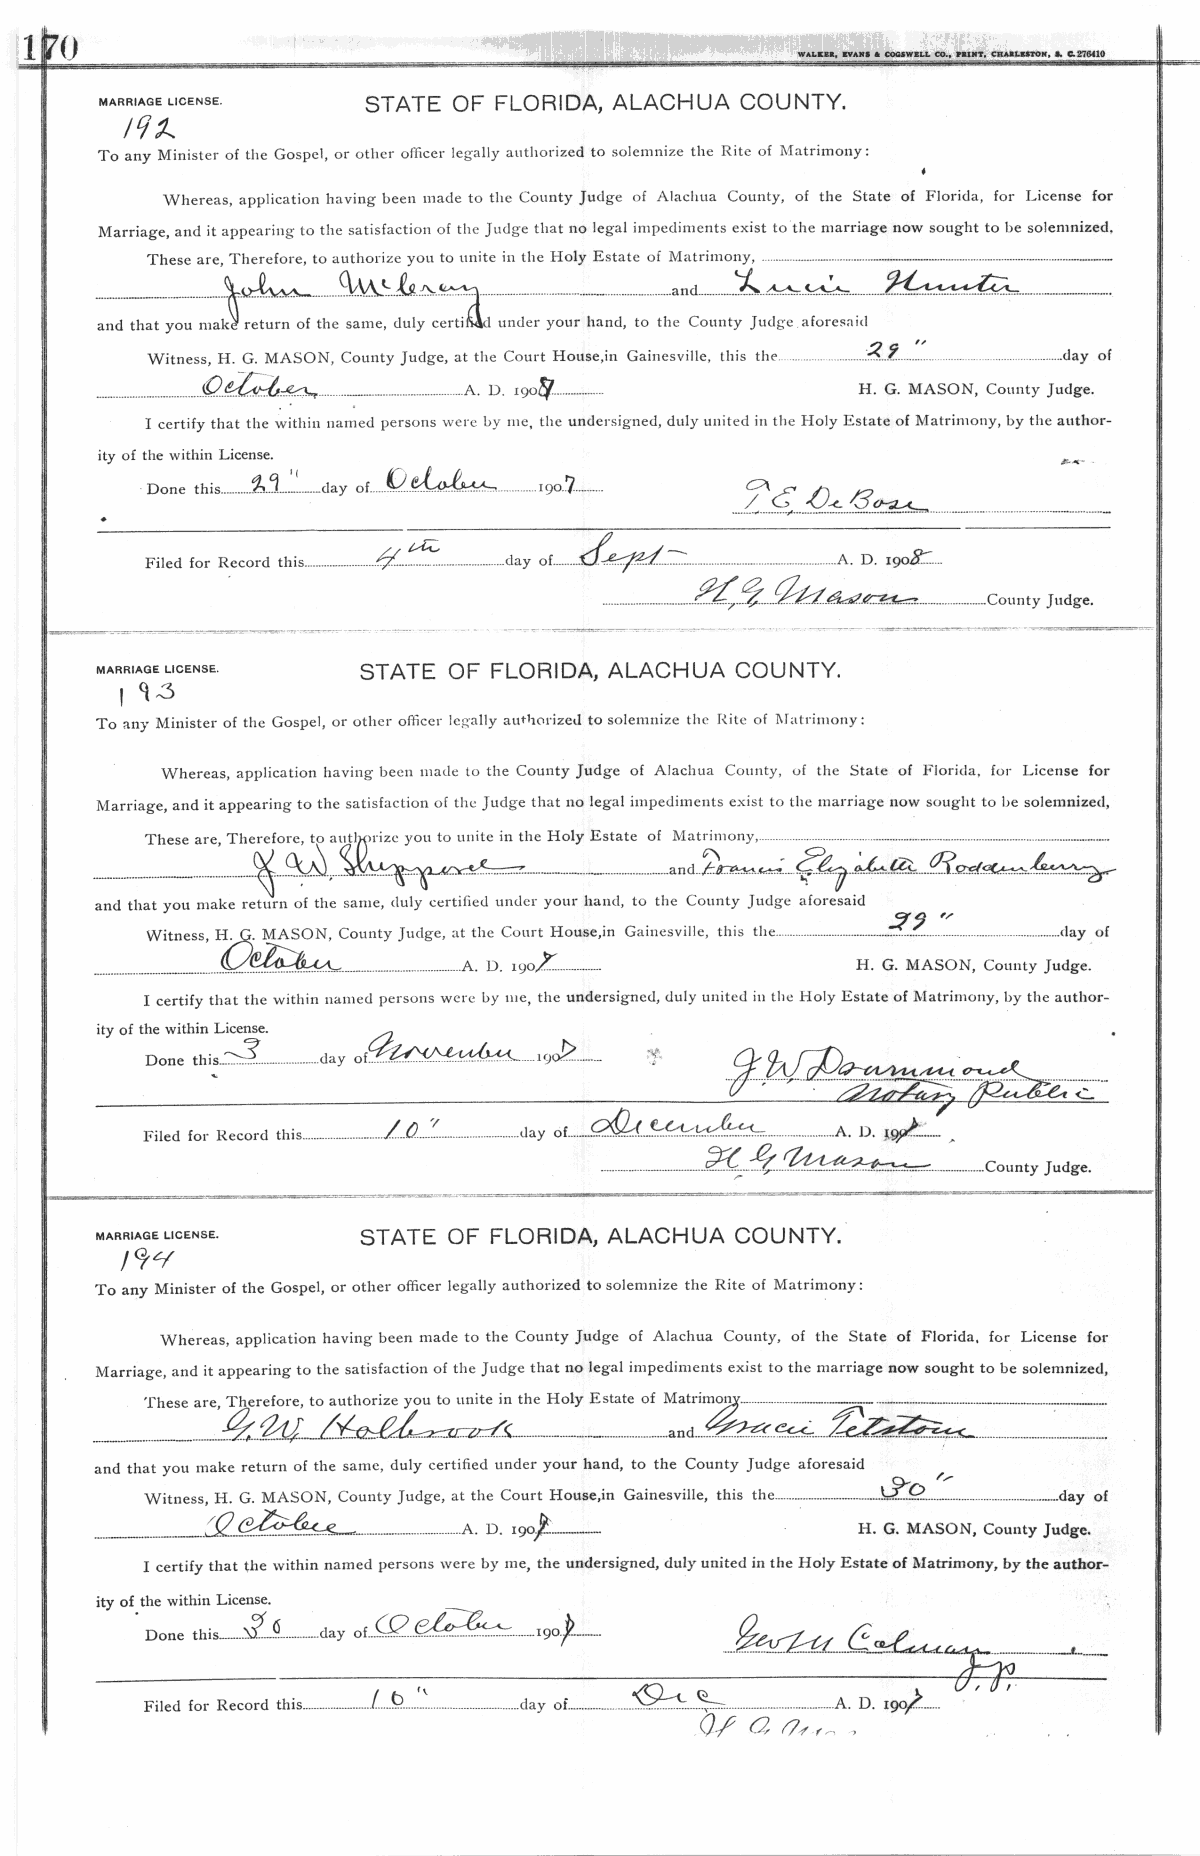 170
WALKER, EVANS & COGSWELL CO., PRINT, CHARLESTON, S. C. 276410
MARRIAGE LICENSE. STATE OF FLORIDA, ALACHUA COUNTY.
192
To any Minister of the Gospel, or other officer legally authorized to solemnize the Rite of Matrimony:
Whereas, application having been made to the County Judge of Alachua County, of the State of Florida, for License for
Marriage, and it appearing to the satisfaction of the Judge that no legal impediments exist to the marriage now sought to be solemnized,
These are, Therefore, to authorize you to unite in the Holy Estate of Matrimony,
John McCray and Lucie Hunter
and that you make return of the same, duly certified under your hand, to the County Judge aforesaid
Witness, H. G. MASON, County Judge, at the Court House, in Gainesville, this the 29" day of
October A. D. 1907 H. G. MASON, County Judge.
I certify that the within named persons were by me, the undersigned, duly united in the Holy Estate of Matrimony, by the author-
ity of the within License.
Done this 29" day of October 1907
T. E. DeBose
Filed for Record this 4th day of Sept A. D. 1908
H. G. Mason County Judge.
MARRIAGE LICENSE. STATE OF FLORIDA, ALACHUA COUNTY.
193
To any Minister of the Gospel, or other officer legally authorized to solemnize the Rite of Matrimony:
Whereas, application having been made to the County Judge of Alachua County, of the State of Florida, for License for
Marriage, and it appearing to the satisfaction of the Judge that no legal impediments exist to the marriage now sought to be solemnized,
These are, Therefore, to authorize you to unite in the Holy Estate of Matrimony,
J. W. Sheppard and Francis Elizabeth Roddenberry
and that you make return of the same, duly certified under your hand, to the County Judge aforesaid
Witness, H. G. MASON, County Judge, at the Court House, in Gainesville, this the 29" day of
October A. D. 1907 H. G. MASON, County Judge.
I certify that the within named persons were by me, the undersigned, duly united in the Holy Estate of Matrimony, by the author-
ity of the within License.
Done this 3 day of November 1907
J. W. Drummond
Notary Public
Filed for Record this 10" day of December A. D. 1907
H. G. Mason County Judge.
MARRIAGE LICENSE. STATE OF FLORIDA, ALACHUA COUNTY.
194
To any Minister of the Gospel, or other officer legally authorized to solemnize the Rite of Matrimony:
Whereas, application having been made to the County Judge of Alachua County, of the State of Florida, for License for
Marriage, and it appearing to the satisfaction of the Judge that no legal impediments exist to the marriage now sought to be solemnized,
These are, Therefore, to authorize you to unite in the Holy Estate of Matrimony
G. W. Holbrook and Gracie Tetstone
and that you make return of the same, duly certified under your hand, to the County Judge aforesaid
Witness, H. G. MASON, County Judge, at the Court House, in Gainesville, this the 30" day of
October A. D. 1907 H. G. MASON, County Judge.
I certify that the within named persons were by me, the undersigned, duly united in the Holy Estate of Matrimony, by the author-
ity of the within License.
Done this 30 day of October 1907
Geo M Colman
J. P.
Filed for Record this 10" day of Dec A. D. 1907